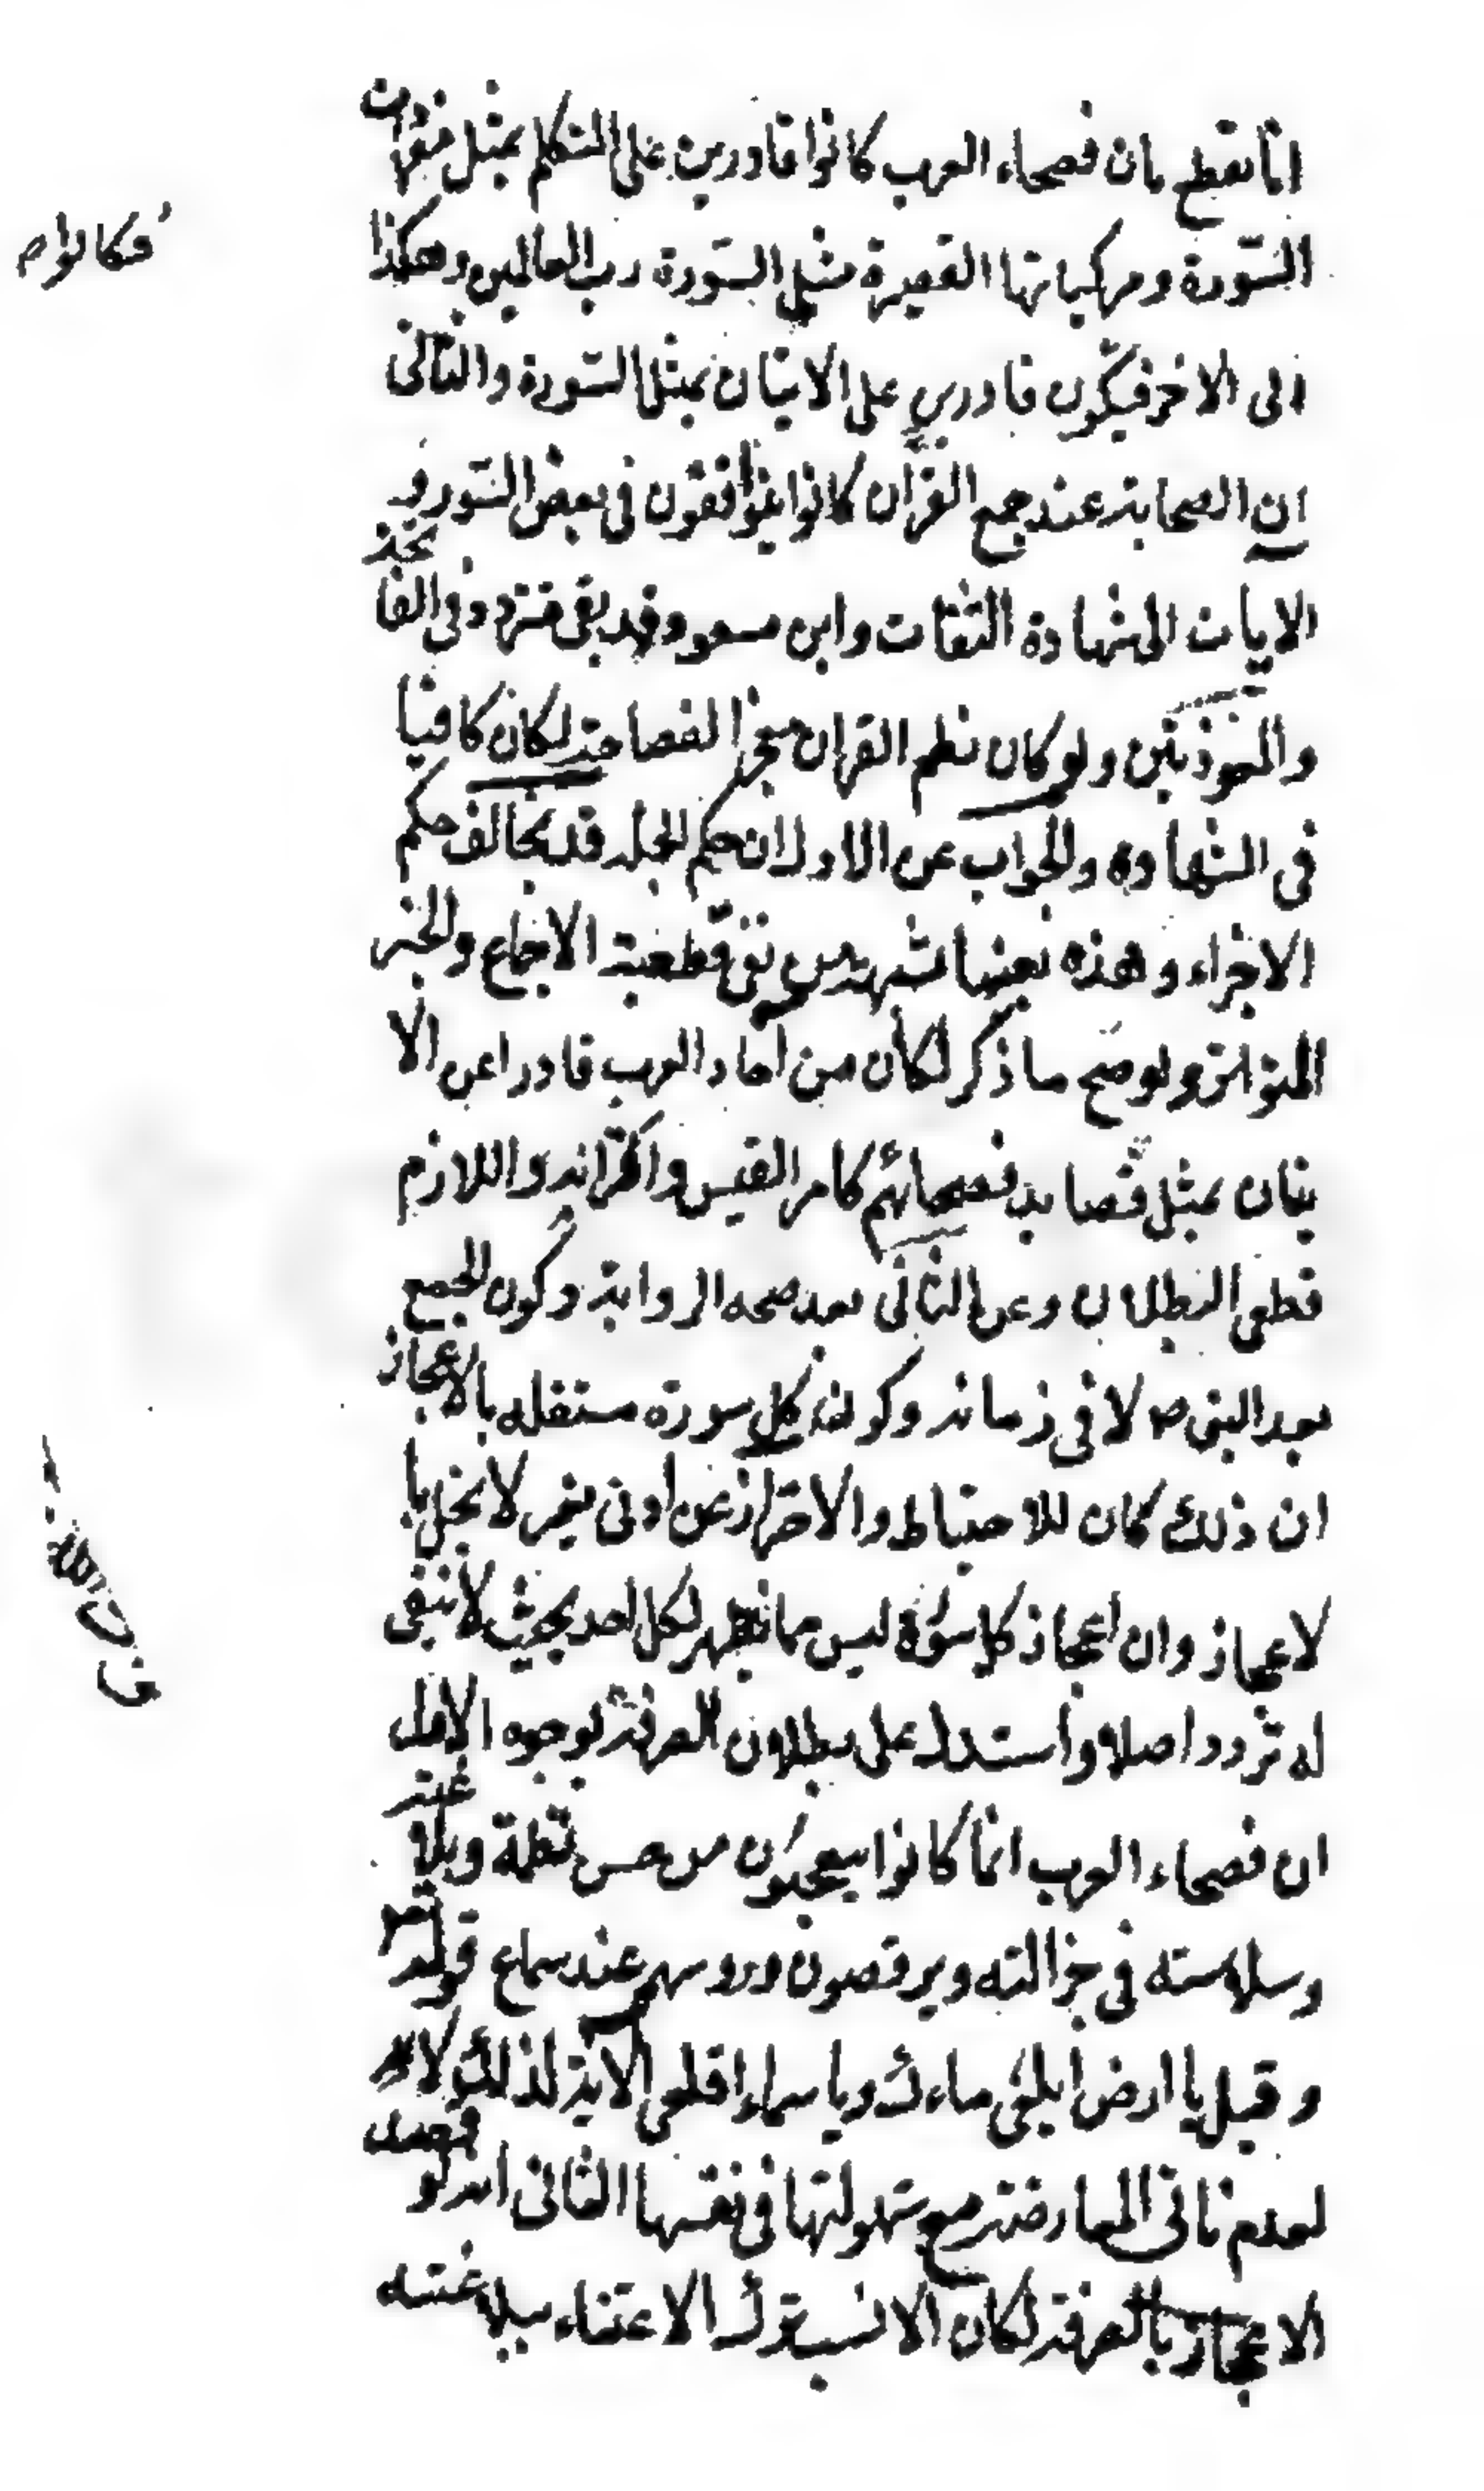 انا نقطع بان فصحاء العرب كانوا قادرين على التكلم بمثل مفردات
السّورة ومركباتها القصيرة مثل السّورة رب العالمين وهكذا
فكانوا
الى الاخر فيكون قادرين على الاتيان بمثل السّورة والثانى
ان الصحابة عند جمع القرآن كانوا يتوافقون فى بعض السّور و
الايات الى شهادة الثقات وابن مسعود قد بقى متردد فى الفاتحة
والمعوذتين ولو كان نظم القران معجزا لفصاحته لكان كافيا
فى الشهادة والجواب عن الاول ان حكم الجملة قد يخالف حكم
الاجزاء وهذه بعينها شبهة من نفى قطعية الاجماع والخبر
المتواتر ولو صح ما ذكر لكان من احاد العرب قادرا عن الا
تيان بمثل قصايد فصحائهم كامر القيس واقرانه واللازم
قطعى البطلان وعن الثانى بعد صحه الرواية وكون الجمع
بعد النبى ص لا فى زمانه وكون كل سورة مستقله بالاعجاز
ان ذلك كان للاحتياط والاحتراز عن ادنى تغير لا يخل با
لاعجاز وان اعجاز كل سورة ليس مما يظهر لكل احد بحيث لا يبقى
له تردد اصلا واستدل على بطلان الصرفة بوجوه الاول
ان فصحاء العرب انما كانوا يتعجبون من حسن نظمة وبلاغته
وسلاسته فى جزالته ويرقصون روسهم عند سماع قوله تعم
وقيل يا ارض ابلعى ماءك ويا سماء اقلعى الاية لذلك لا
لعدم تاتى المعارضة مع سهولتها فى نفسها الثانى انه لو قصد
الاعجاز بالصرفة لكان الانسب ترك الاعتناء ببلاغته